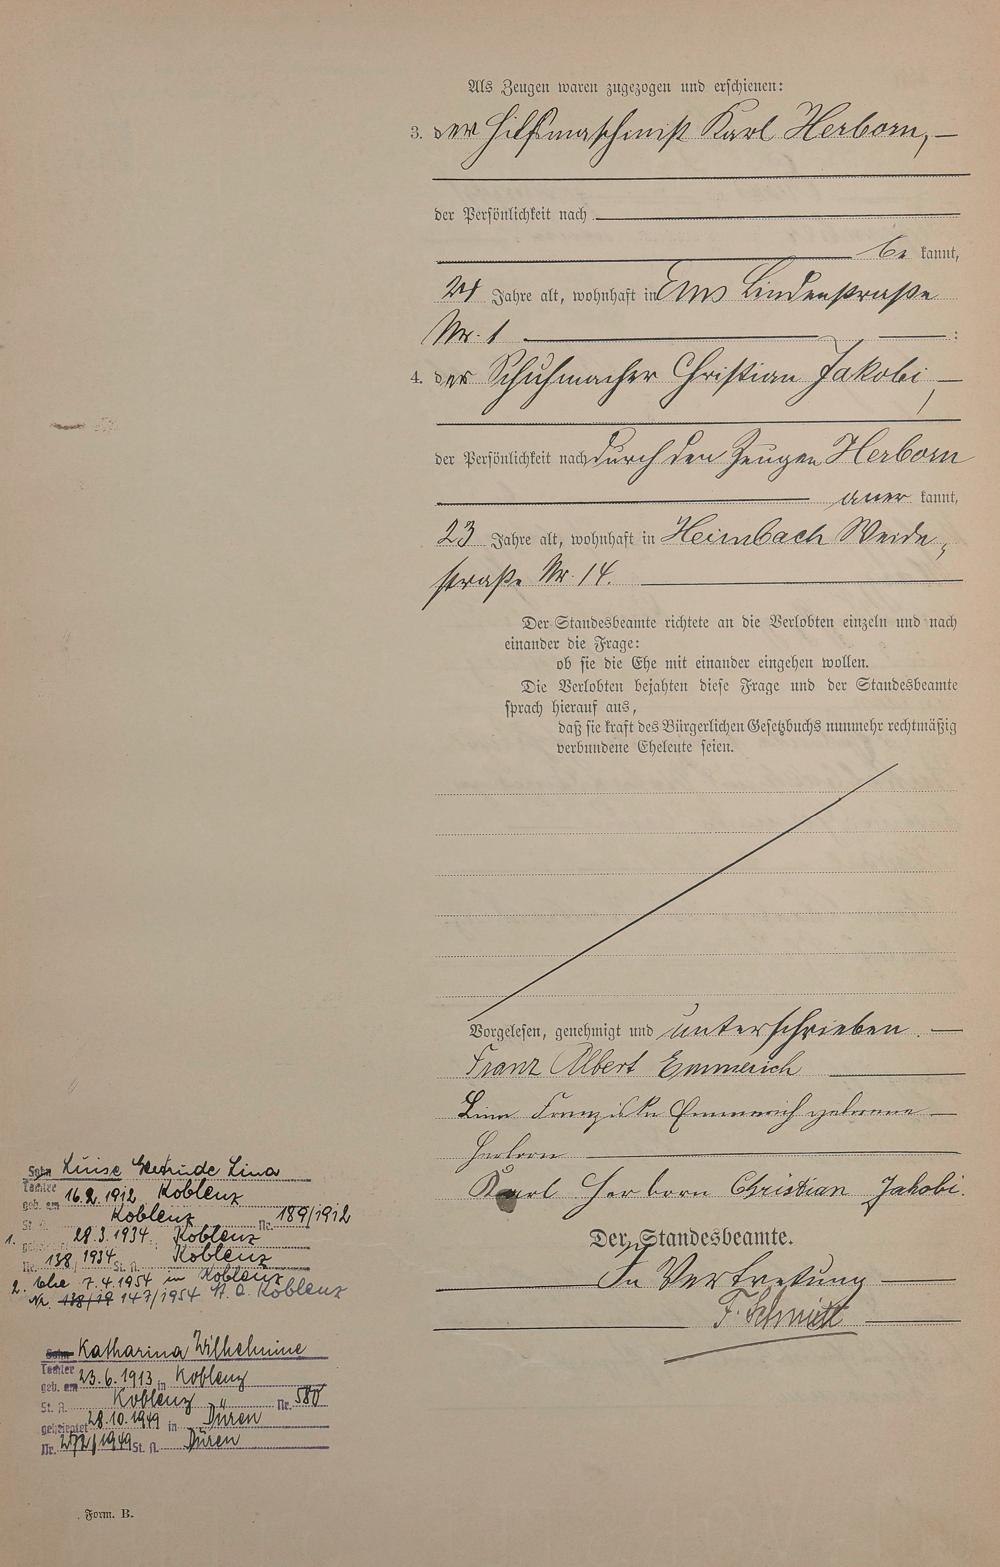 Als Zeugen waren zugezogen und erschienen:
3. der Hilfsmaschinist Karl Herborn, —
der Persönlichkeit nach
be kannt,
Jahre alt, wohnhaft in Ems Lindenstraße
Nr. 1 :
4. der Schuhmacher Christian Jakobi, —
der Persönlichkeit nach durch den Zeugen Herborn
aner kannt,
23 Jahre alt, wohnhaft in Heimbach Weide-
straße Nr. 14.
Der Standesbeamte richtete an die Verlobten einzeln und nach
einander die Frage:
ob sie die Ehe mit einander eingehen wollen.
Die Verlobten bejahten diese Frage und der Standesbeamte
sprach hierauf aus,
daß sie kraft des Bürgerlichen Gesetzbuchs nunmehr rechtmäßig
verbundene Eheleute seien.
Vorgelesen, genehmigt und unterschrieben. —
Franz Albert Emmerich
Lina Franziska Emmerich geborene —
Herborn
Karl Herborn Christian Jakobi.
Der Standesbeamte.
In Vertretung
F. Schmitt
Sohn Luise Gertrude Lina
Tochter
geb. am 16.2.1912 Koblenz
St. A. Koblenz Nr. 189/1912
1. 28.3.1934 Koblenz
Nr. 138/1934 St. A. Koblenz
2. Ehe 7.4.1954 in Koblenz
Nr. 138/19 147/1954 St. A. Koblenz
Sohn Katharina Wilhelmine
Tochter
geb. am 23.6.1913 in Koblenz
St. A. Koblenz Nr. 580
geheiratet 28.10.1949 in Düren
Nr. 272/1949 St. A. Düren
Form. B.